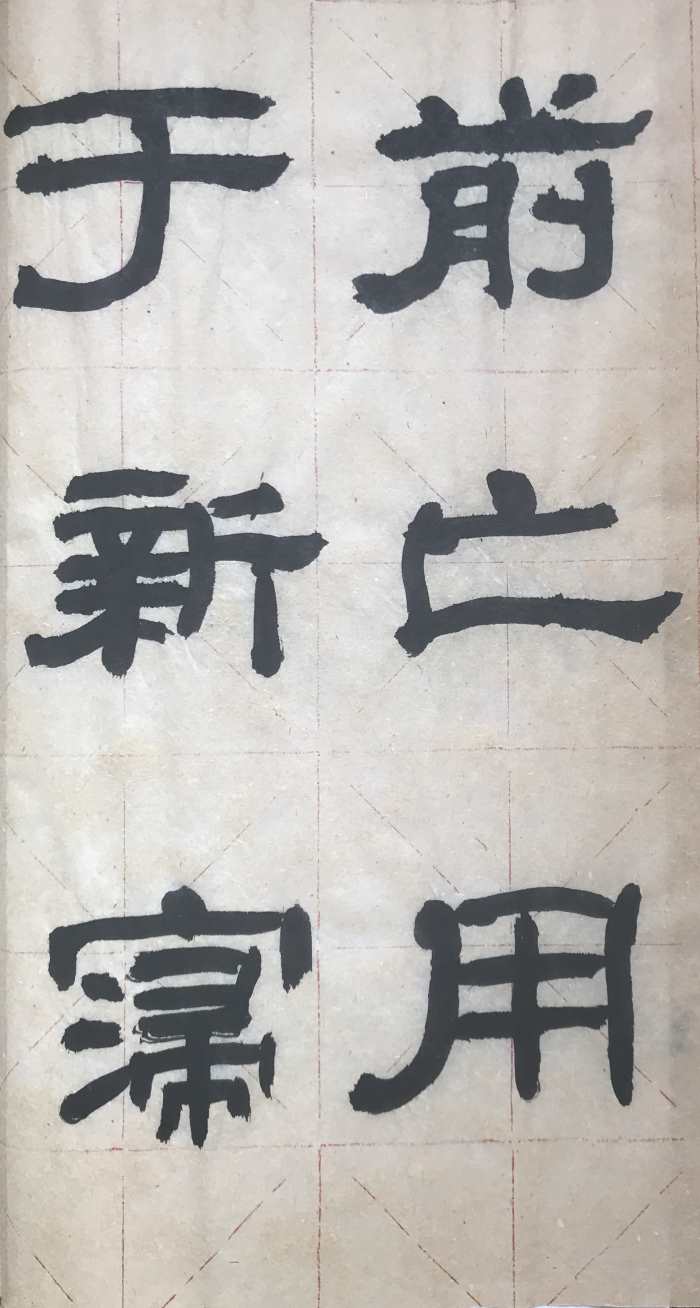 前亡用
于新寖